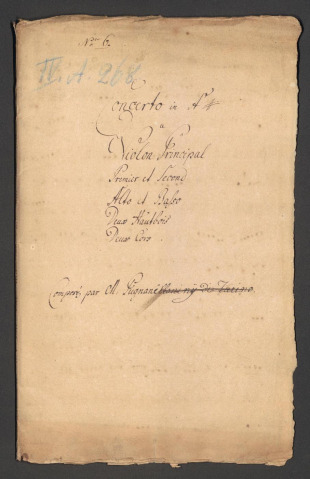 Nro 6.
IV. A 268
Concerto in A#
a
Violon Principal
Premier et Second
Alto et Basso
Deux Hautbois
Deux Cors
Composé par M. Pugnani